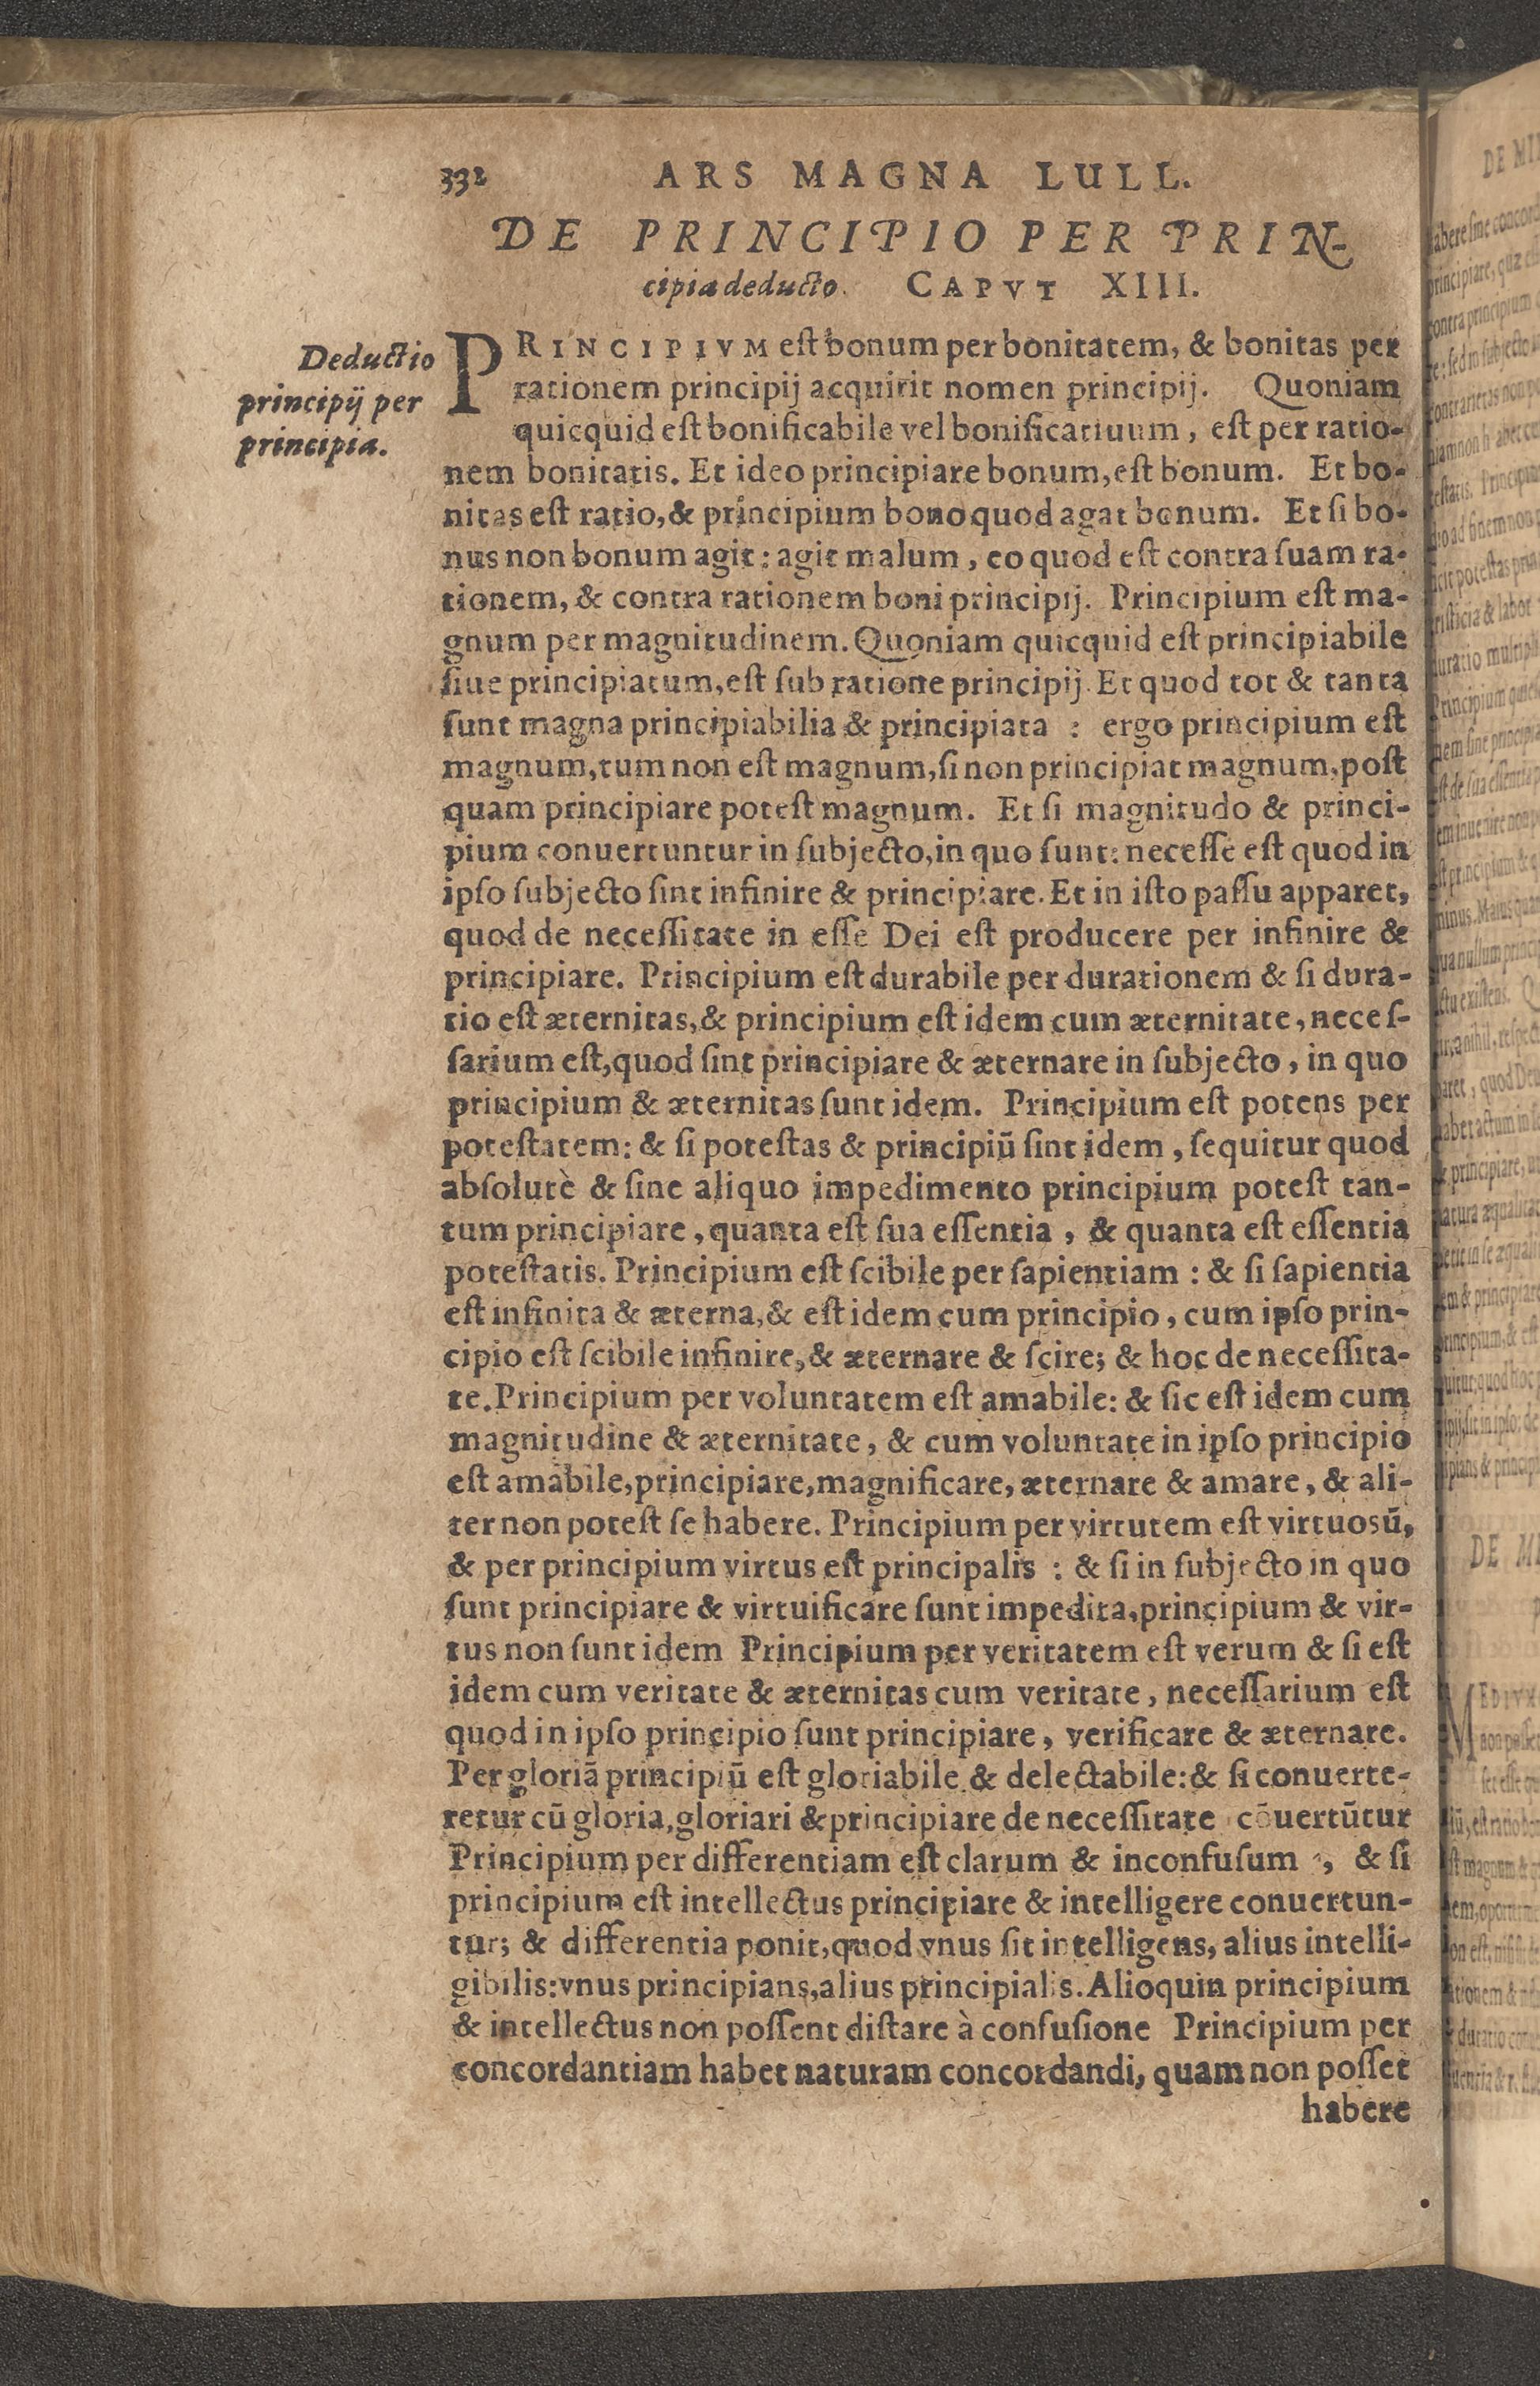 332 ARS MAGNA LULL.
DE PRINCIPIO PER PRIN-
cipia deducto. CAPVT XIII.
Deductio
principij per
principia.
PRINCIPIVM eſt bonum per bonitatem, & bonitas per
rationem principij acquirit nomen principij. Quoniam
quicquid eſt bonificabile vel bonificatiuum, eſt per ratio-
nem bonitatis. Et ideo principiare bonum, eſt bonum. Et bo-
nitas eſt ratio, & principium bono quod agat bonum. Et ſi bo-
nus non bonum agit: agit malum, eo quod eſt contra ſuam ra-
tionem, & contra rationem boni principij. Principium eſt ma-
gnum per magnitudinem. Quoniam quicquid eſt principiabile
ſiue principiatum, eſt ſub ratione principij. Et quod tot & tanta
ſunt magna principiabilia & principiata : ergo principium eſt
magnum, tum non eſt magnum, ſi non principiat magnum, poſt
quam principiare poteſt magnum. Et ſi magnitudo & princi-
pium conuertuntur in ſubjecto, in quo ſunt: neceſſe eſt quod in
ipſo ſubjecto ſint infinire & principiare. Et in iſto paſſu apparet,
quod de neceſſitate in eſſe Dei eſt producere per infinire &
principiare. Principium eſt durabile per durationem & ſi dura-
tio eſt æternitas, & principium eſt idem cum æternitate, neceſ-
ſarium eſt, quod ſint principiare & æternare in ſubjecto, in quo
principium & æternitas ſunt idem. Principium eſt potens per
poteſtatem: & ſi poteſtas & principiū ſint idem, ſequitur quod
abſolutè & ſine aliquo impedimento principium poteſt tan-
tum principiare, quanta eſt ſua eſſentia, & quanta eſt eſſentia
poteſtatis. Principium eſt ſcibile per ſapientiam : & ſi ſapientia
eſt infinita & æterna, & eſt idem cum principio, cum ipſo prin-
cipio eſt ſcibile infinire, & æternare & ſcire; & hoc de neceſſita-
te. Principium per voluntatem eſt amabile: & ſic eſt idem cum
magnitudine & æternitate, & cum voluntate in ipſo principio
eſt amabile, principiare, magnificare, æternare & amare, & ali-
ter non poteſt ſe habere. Principium per virtutem eſt virtuosū,
& per principium virtus eſt principalis : & ſi in ſubjecto in quo
ſunt principiare & virtuificare ſunt impedita, principium & vir-
tus non ſunt idem Principium per veritatem eſt verum & ſi eſt
idem cum veritate & æternitas cum veritate, neceſſarium eſt
quod in ipſo principio ſunt principiare, verificare & æternare.
Per gloriā principiū eſt gloriabile & delectabile: & ſi conuerte-
retur cū gloria, gloriari & principiare de neceſſitate cōuertūtur
Principium per differentiam eſt clarum & inconfuſum , & ſi
principium eſt intellectus principiare & intelligere conuertun-
tur; & differentia ponit, quod vnus ſit intelligens, alius intelli-
gibilis: vnus principians, alius principialis. Alioquin principium
& intellectus non poſſent diſtare à confuſione Principium per
concordantiam habet naturam concordandi, quam non poſſet
habere